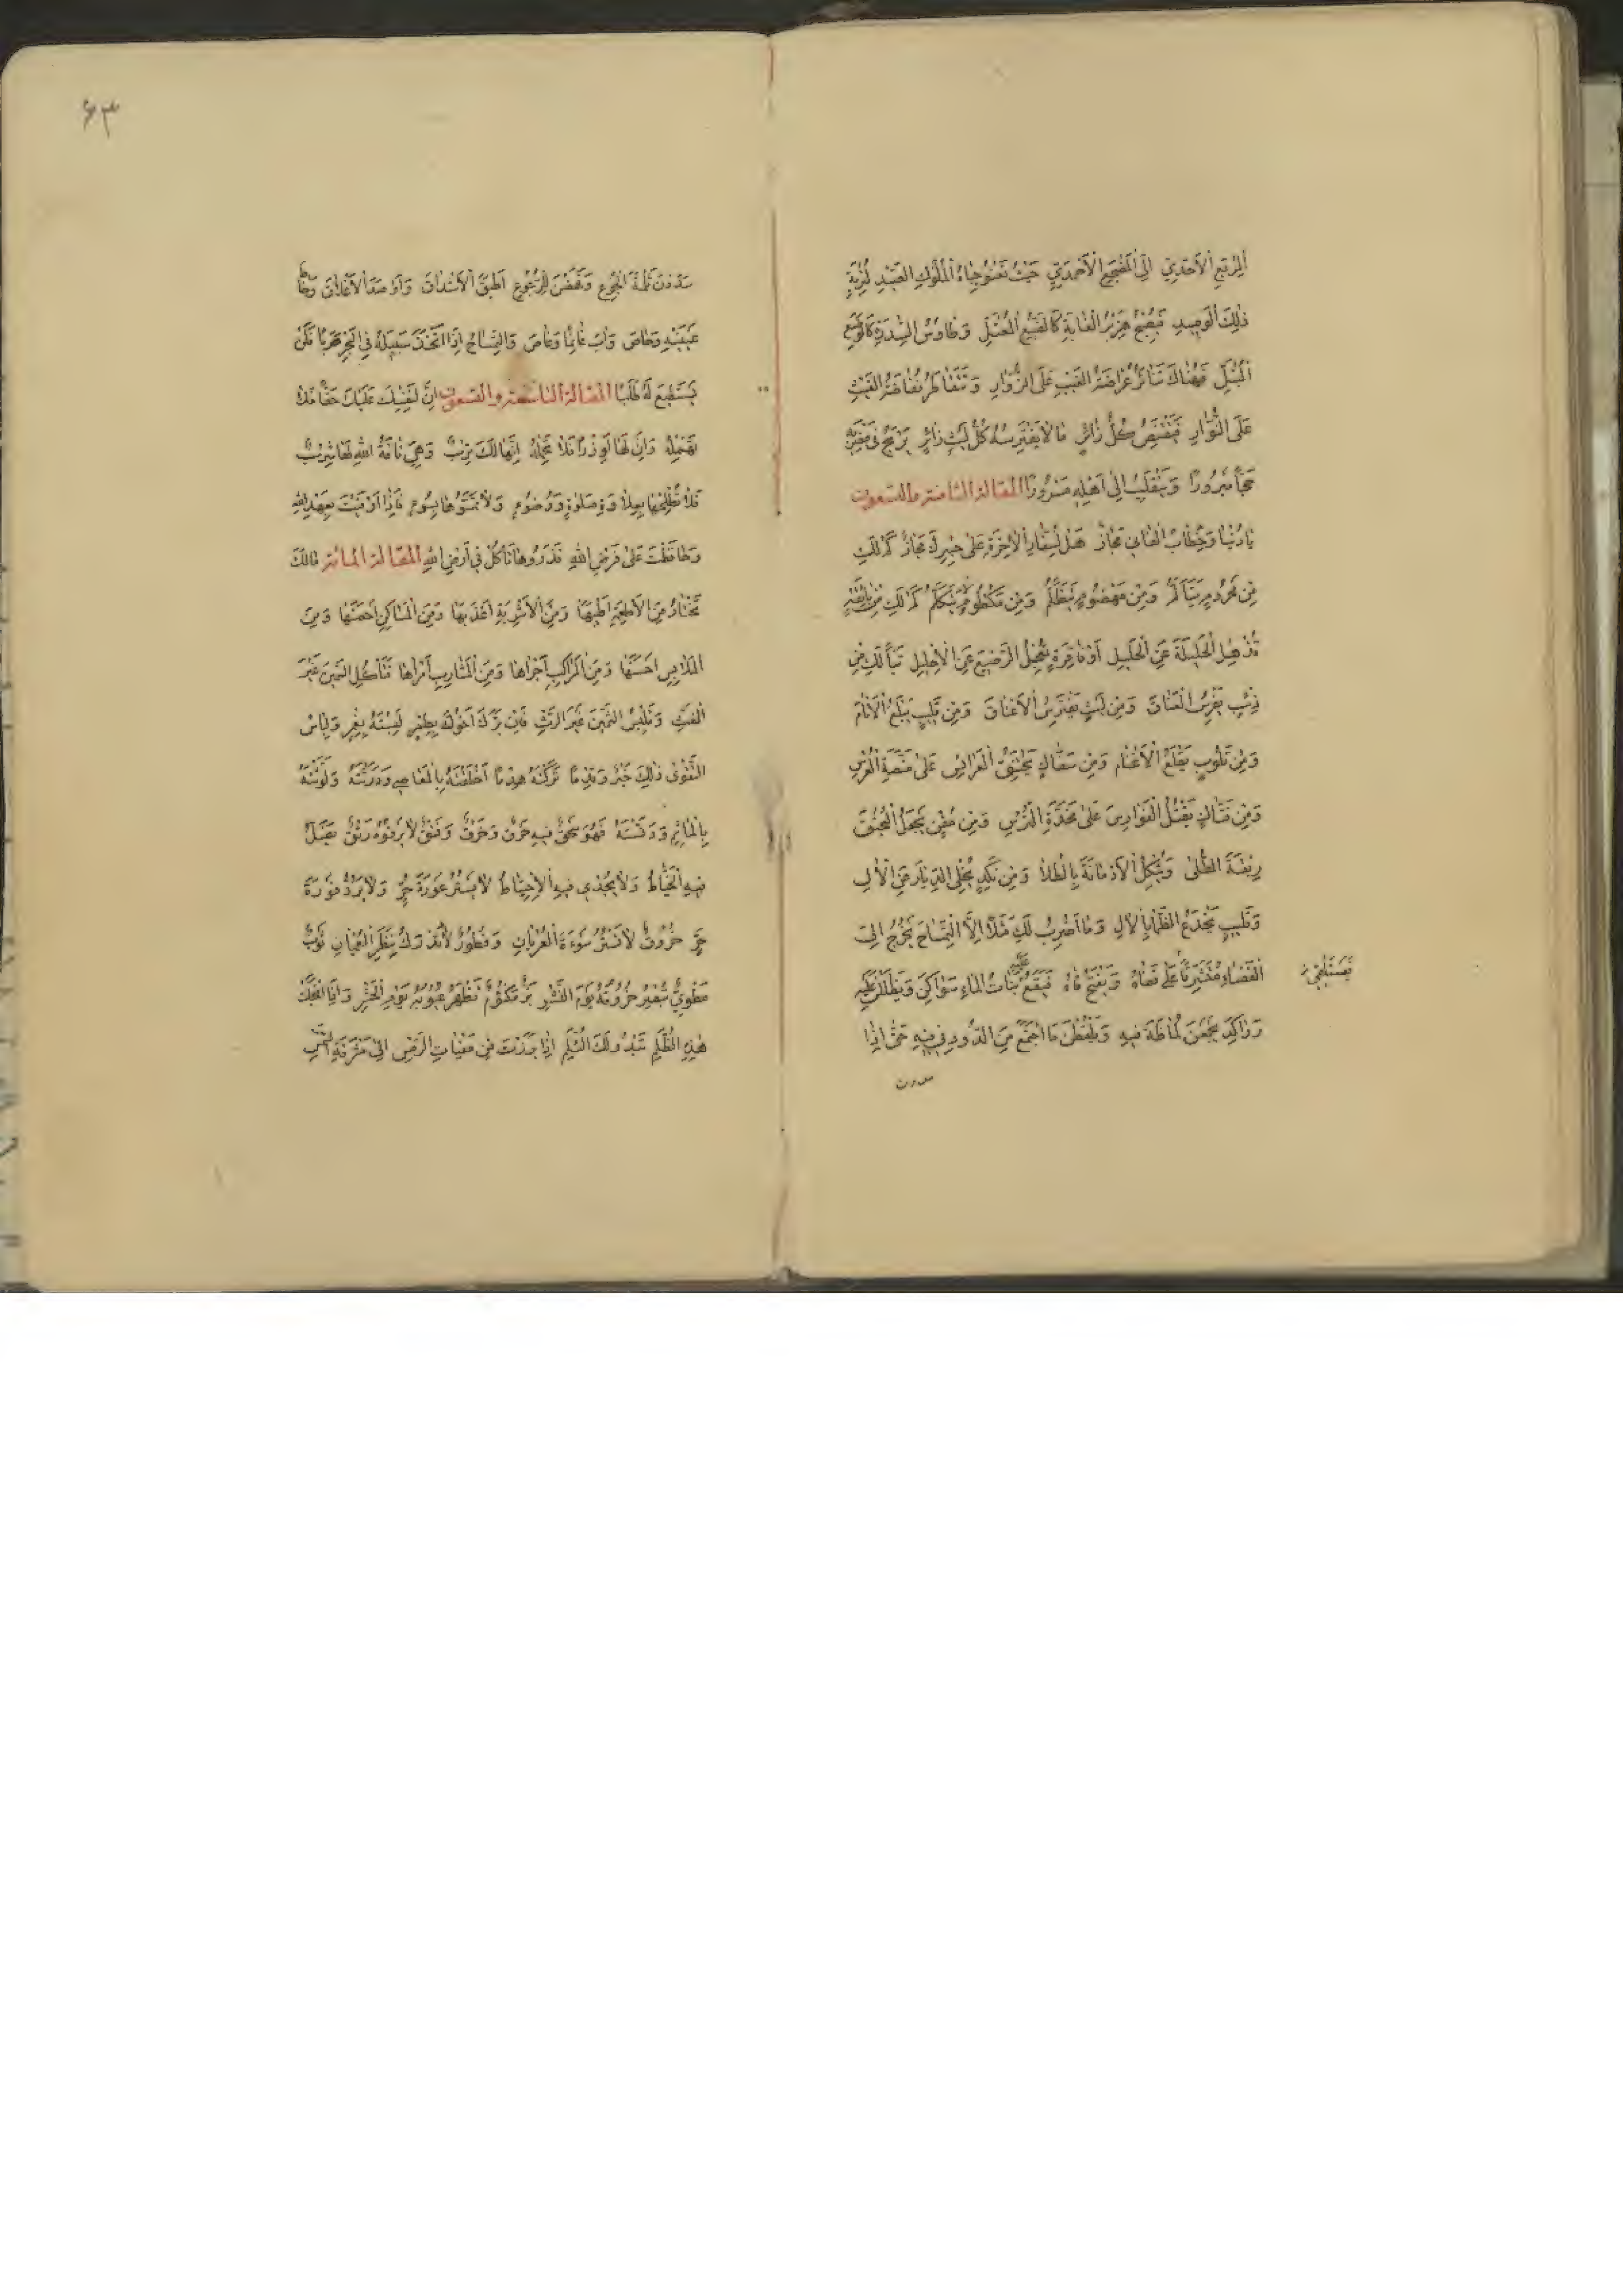 المربع الأحدي الى المضجع الأحمدي حيث تعنو جباه الملوك الصيد لتربة
ذلك الوصيد فيصبح هزبر الغابة كالضبع المعيل وطاوس السدرة كالوصع
المبيل فهناك تناثر عراضة الغيب على الزوار وتتقاطر نفاضة الغيث
على النوار فيقتنص كل زائر ما لا يفترسه كل ليث زائر يرجع في
حجا مبرورا وينقلب الى اهله مسرورا المقالة الثامنة والتسعون
يا دنيا وخطاب الفاني مجاز هل لسفار الآخرة على جسرك مجاز كم لك
من محروم يتألم ومن مهضوم يتظلم ومن مكظوم لا يتكلم كم لك من
تذهل الحليلة عن الحليل او فاقرة تعجل الرضيع عن الاحليل تبا لك من
ذئب يفرس العناق ومن ليث يفترس الاعناق ومن قليب يبلع الانام
ومن قلوب يقلع الاغنام ومن سفاك يخنق العرائس على منصة العرس
ومن فتاك يقتل الفوارس على مخدة الترس ومن مفن يجعل العنق
ربقة الطلى ويشكل الادمانة بالطلا ومن نكد يجلي الديار عن الآل
وقليب يخدع الظمأ بالآل وما اضرب لك مثلا الا التمساح يخرج الى
الفضاء على قفاه ويفتح فاه فيقع عليه بنات الماء سواكن ويظللن عليه
فيستلقي
رواكد يجمعن لماظة فيه ويلقطن ما اجتمع من الدود في فيه حتى اذا
سددن
٦٣
سددن ثلمة الجوع ونهضن للرجوع اطبق الاشداق واوصد الاغلاق وخاط
عينيه وحاص واب غانما وغاص والتمساح اذا اتخذ سبيله في البحر هربا فلن
يستطيع له طلبا المقالة التاسعة والتسعون ان لنفسك عليك حقا فلا
تهمله وان لها لوزرا فلا تحمله انها لك تربت وهي ناقة الله لها شرب
فلا تظلمها بصلاة ووضوء ولا تمسوها بسوء فاذا اوفيت بعهد الله
وحافظت على فرض الله فذروها تأكل في ارض الله المقالة المائة مالك
تختار من الاطعمة اطيبها ومن الاشربة اعذبها ومن المساكن احصنها ومن
الملابس احسنها ومن المراكب اجراها ومن المشارب امراها تأكل السمين غير
الغث وتلبس الثمين غير الرث فان بزك اخوك بطمر لبسته بغمر ولباس
التقوى ذلك خير وبئس ما تركته هدما اخلقته بالمعاصي ودرنته ولوثته
بالمآثم ودنسته فهو سحق فيه خرق وخرق وفتق لا يرفوه رتق يتحير
فيه الخياط ولا يجدي فيه الاحتياط لا يستر عورة حر ولا يرد فورة
حر خروق لا تستر سوءة العريان وفطور لا تدرك بنظر العيان ثوب
مطوي ستغير خروقه يوم النشر بز مكتوم تظهر عيوبه يوم الحشر واياك
هذه الظلم تبدو لك الثلم اذا برزت من مغيبات الرمس الى مشرقة الشمس